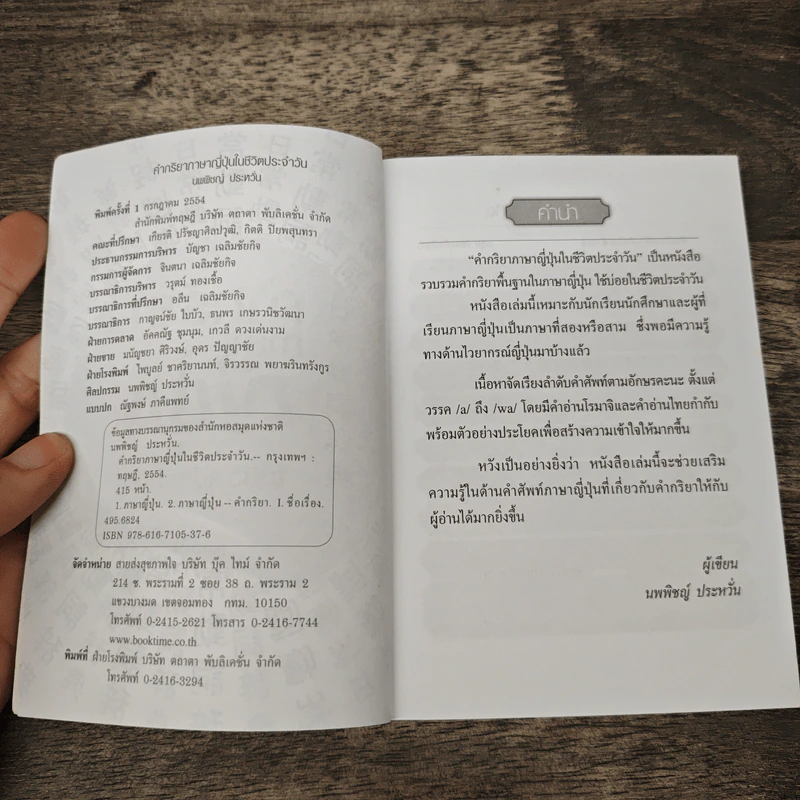 คำกริยาภาษาญี่ปุ่นในชีวิตประจำวัน
นพพิชญ์ ประหวั่น
พิมพ์ครั้งที่ 1 กรกฎาคม 2554
สำนักพิมพ์ทฤษฎี บริษัท ตถาตา พับลิเคชั่น จำกัด
คณะที่ปรึกษา เกียรติ ปรัชญาศิลปวุฒิ, กิตติ ปิยพสุนทรา
ประธานกรรมการบริหาร บัญชา เฉลิมชัยกิจ
กรรมการผู้จัดการ จินตนา เฉลิมชัยกิจ
บรรณาธิการบริหาร วรุตม์ ทองเชื้อ
บรรณาธิการที่ปรึกษา อลีน เฉลิมชัยกิจ
บรรณาธิการ กาญจน์ชัย ใบบัว, ธนพร เกษรวนิชวัฒนา
ฝ่ายการตลาด อัคคณัฐ ชุมนุม, เกวลี ดวงเด่นงาม
ฝ่ายขาย มนัญชยา ศิริวงษ์, อุดร ปัญญาชัย
ฝ่ายโรงพิมพ์ ไพบูลย์ ชาคริยานนท์, จิรวรรณ พยาฆรินทรังกูร
ศิลปกรรม นพพิชญ์ ประหวั่น
แบบปก ณัฐพงษ์ ภาคีแพทย์
ข้อมูลทางบรรณานุกรมของสำนักหอสมุดแห่งชาติ
นพพิชญ์ ประหวั่น.
คำกริยาภาษาญี่ปุ่นในชีวิตประจำวัน.-- กรุงเทพฯ :
ทฤษฎี, 2554.
415 หน้า.
1. ภาษาญี่ปุ่น. 2. ภาษาญี่ปุ่น -- คำกริยา. I. ชื่อเรื่อง.
495.6824
ISBN 978-616-7105-37-6
จัดจำหน่าย สายส่งสุขภาพใจ บริษัท บุ๊ค ไทม์ จำกัด
214 ซ. พระรามที่ 2 ซอย 38 ถ. พระราม 2
แขวงบางมด เขตจอมทอง กทม. 10150
โทรศัพท์ 0-2415-2621 โทรสาร 0-2416-7744
www.booktime.co.th
พิมพ์ที่ ฝ่ายโรงพิมพ์ บริษัท ตถาตา พับลิเคชั่น จำกัด
โทรศัพท์ 0-2416-3294
คำนำ
“คำกริยาภาษาญี่ปุ่นในชีวิตประจำวัน” เป็นหนังสือ
รวบรวมคำกริยาพื้นฐานในภาษาญี่ปุ่น ใช้บ่อยในชีวิตประจำวัน
หนังสือเล่มนี้เหมาะกับนักเรียนนักศึกษาและผู้ที่
เรียนภาษาญี่ปุ่นเป็นภาษาที่สองหรือสาม ซึ่งพอมีความรู้
ทางด้านไวยากรณ์ญี่ปุ่นมาบ้างแล้ว
เนื้อหาจัดเรียงลำดับคำศัพท์ตามอักษรคะนะ ตั้งแต่
วรรค /a/ ถึง /wa/ โดยมีคำอ่านโรมาจิและคำอ่านไทยกำกับ
พร้อมตัวอย่างประโยคเพื่อสร้างความเข้าใจให้มากขึ้น
หวังเป็นอย่างยิ่งว่า หนังสือเล่มนี้จะช่วยเสริม
ความรู้ในด้านคำศัพท์ภาษาญี่ปุ่นที่เกี่ยวกับคำกริยาให้กับ
ผู้อ่านได้มากยิ่งขึ้น
ผู้เขียน
นพพิชญ์ ประหวั่น